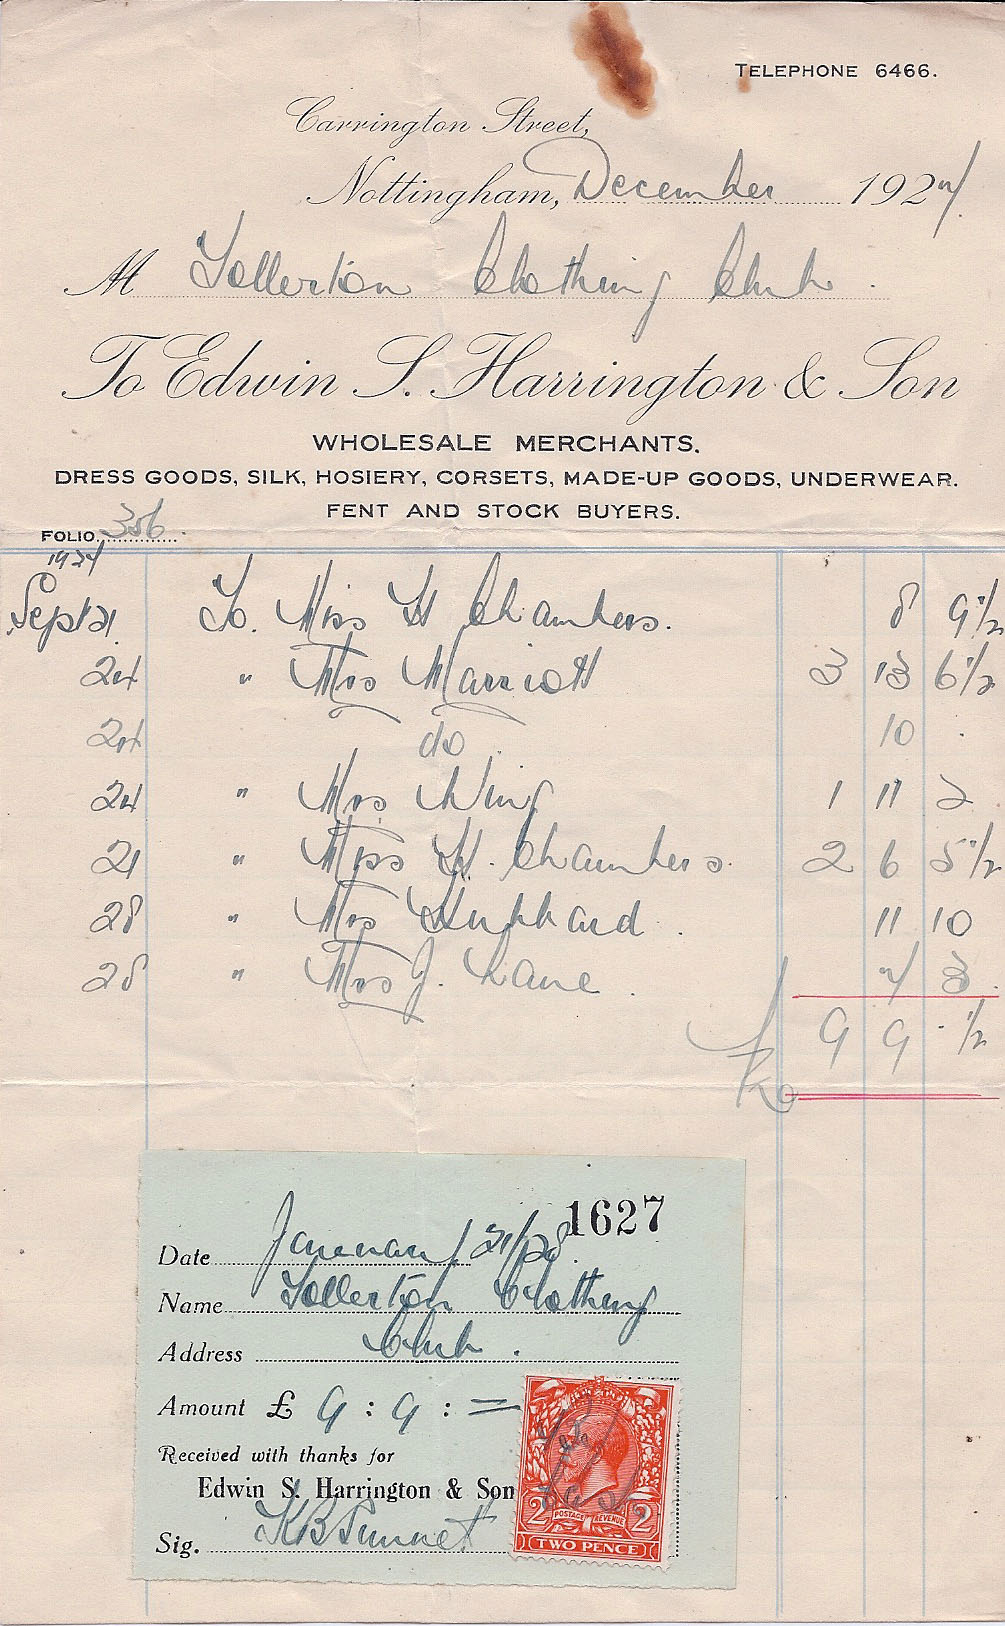 TELEPHONE 6466.
Carrington Street,
Nottingham, December 1927
M Tollerton Clothing Club.
To Edwin S. Harrington & Son
WHOLESALE MERCHANTS.
DRESS GOODS, SILK, HOSIERY, CORSETS, MADE-UP GOODS, UNDERWEAR.
FENT AND STOCK BUYERS.
FOLIO 356
1927
Sept 21 To Miss H Chambers. 8 9½
24 " Mrs Marriott 3 13 6½
24 do 10 .
24 " Mrs Wing 1 11 2
21 " Miss H. Chambers. 2 6 5½
28 " Mrs Hubbard. 11 10
28 " Mrs J. Lane. 7 3
9 9 ½
1627
Date January 21/28
Name Tollerton Clothing
Address Club.
Amount £ 9 : 9 : =
Received with thanks for
Edwin S. Harrington & Son
Sig.
2 POSTAGE REVENUE 2
TWO PENCE